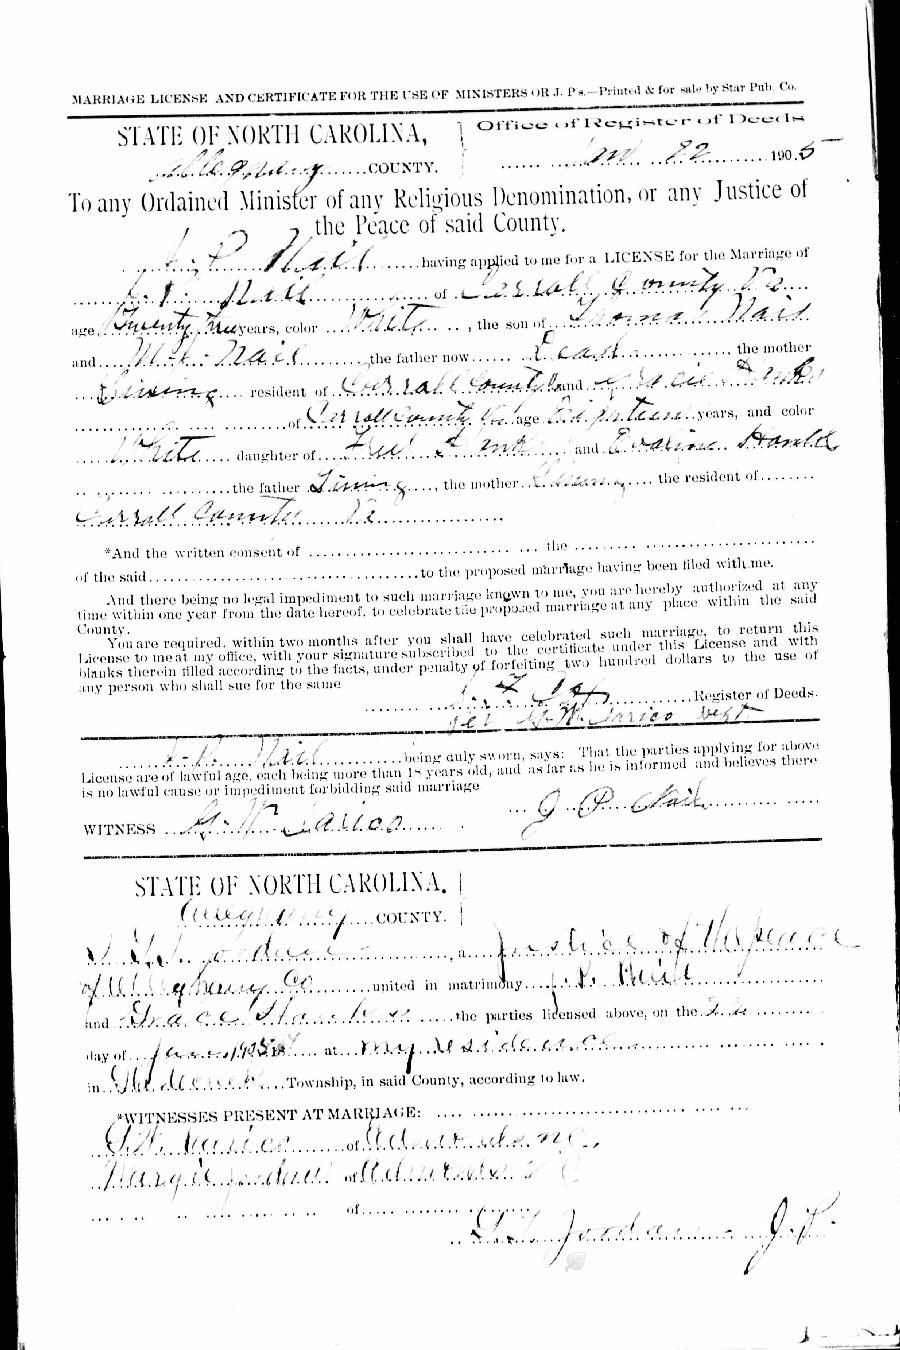 MARRIAGE LICENSE AND CERTIFICATE FOR THE USE OF MINISTERS OR J. P's.—Printed & for sale by Star Pub. Co.
STATE OF NORTH CAROLINA,
Alleghany COUNTY.
Office of Register of Deeds
Jan 22 1905
To any Ordained Minister of any Religious Denomination, or any Justice of
the Peace of said County.
J. P. Nail having applied to me for a LICENSE for the Marriage of
J. P. Nail of Carroll County Va
age Twenty Three years, color White, the son of Thomas Nail
and M. A. Nail the father now Dead, the mother
Living resident of Carroll County Va and Gracie Hawks
of Carroll County Va age Eighteen years, and color
White daughter of Fred Hawks and Evaline Hawks
the father Living, the mother Living the resident of
Carroll County Va
*And the written consent of the
of the said to the proposed marriage having been filed with me.
And there being no legal impediment to such marriage known to me, you are hereby authorized at any
time within one year from the date hereof, to celebrate the proposed marriage at any place within the said
County.
You are required, within two months after you shall have celebrated such marriage, to return this
License to me at my office, with your signature subscribed to the certificate under this License and with
blanks therein filled according to the facts, under penalty of forfeiting two hundred dollars to the use of
any person who shall sue for the same
Register of Deeds.
per G. W. Sarico Dept
J. P. Nail being duly sworn, says: That the parties applying for above
License are of lawful age, each being more than 18 years old, and as far as he is informed and believes there
is no lawful cause or impediment forbidding said marriage
J P Nail
WITNESS G. W. Sarico
STATE OF NORTH CAROLINA.
Alleghany COUNTY.
Jordan, a Justice of the peace
of Alleghany Co united in matrimony J. P. Neill
and Grace Hawks the parties licensed above, on the 22
day of Jan 1905 at my residence
in Township, in said County, according to law.
*WITNESSES PRESENT AT MARRIAGE:
of Edmonds N C.
Margie Jordan of Edmonds N C
of
Jordan J. P.